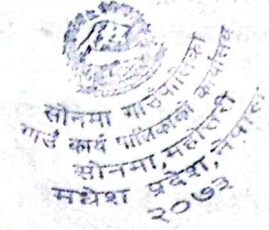 सोनमा गाउँपालिका
गाउँ कार्य पालिकाको कार्यालय
सोनमा, महोत्तरी
मधेश प्रदेश, नेपाल
२०७३